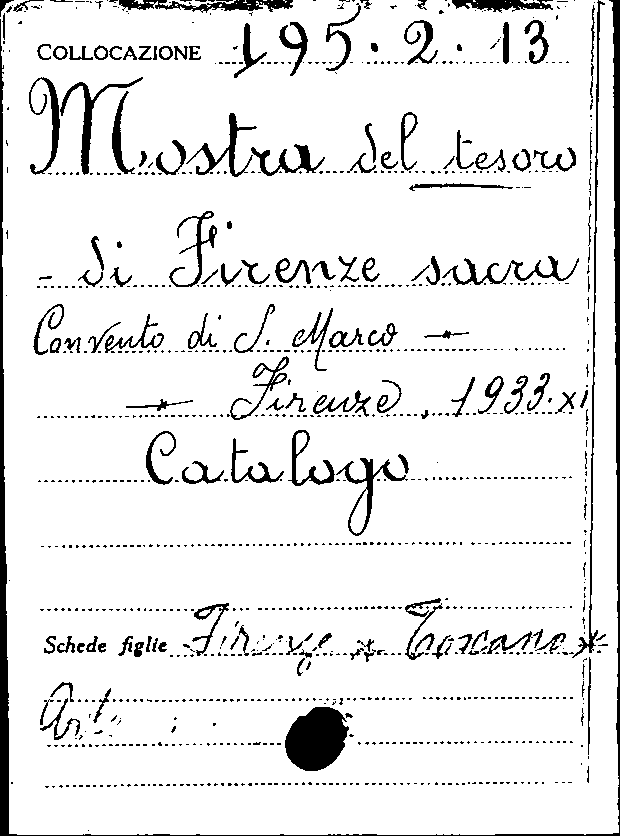 COLLOCAZIONE 195.2.13
Mostra del tesoro
- di Firenze sacra
Convento di S. Marco —
— Firenze, 1933.XI
Catalogo
Schede figlie Firenze * Toscana *
Arte